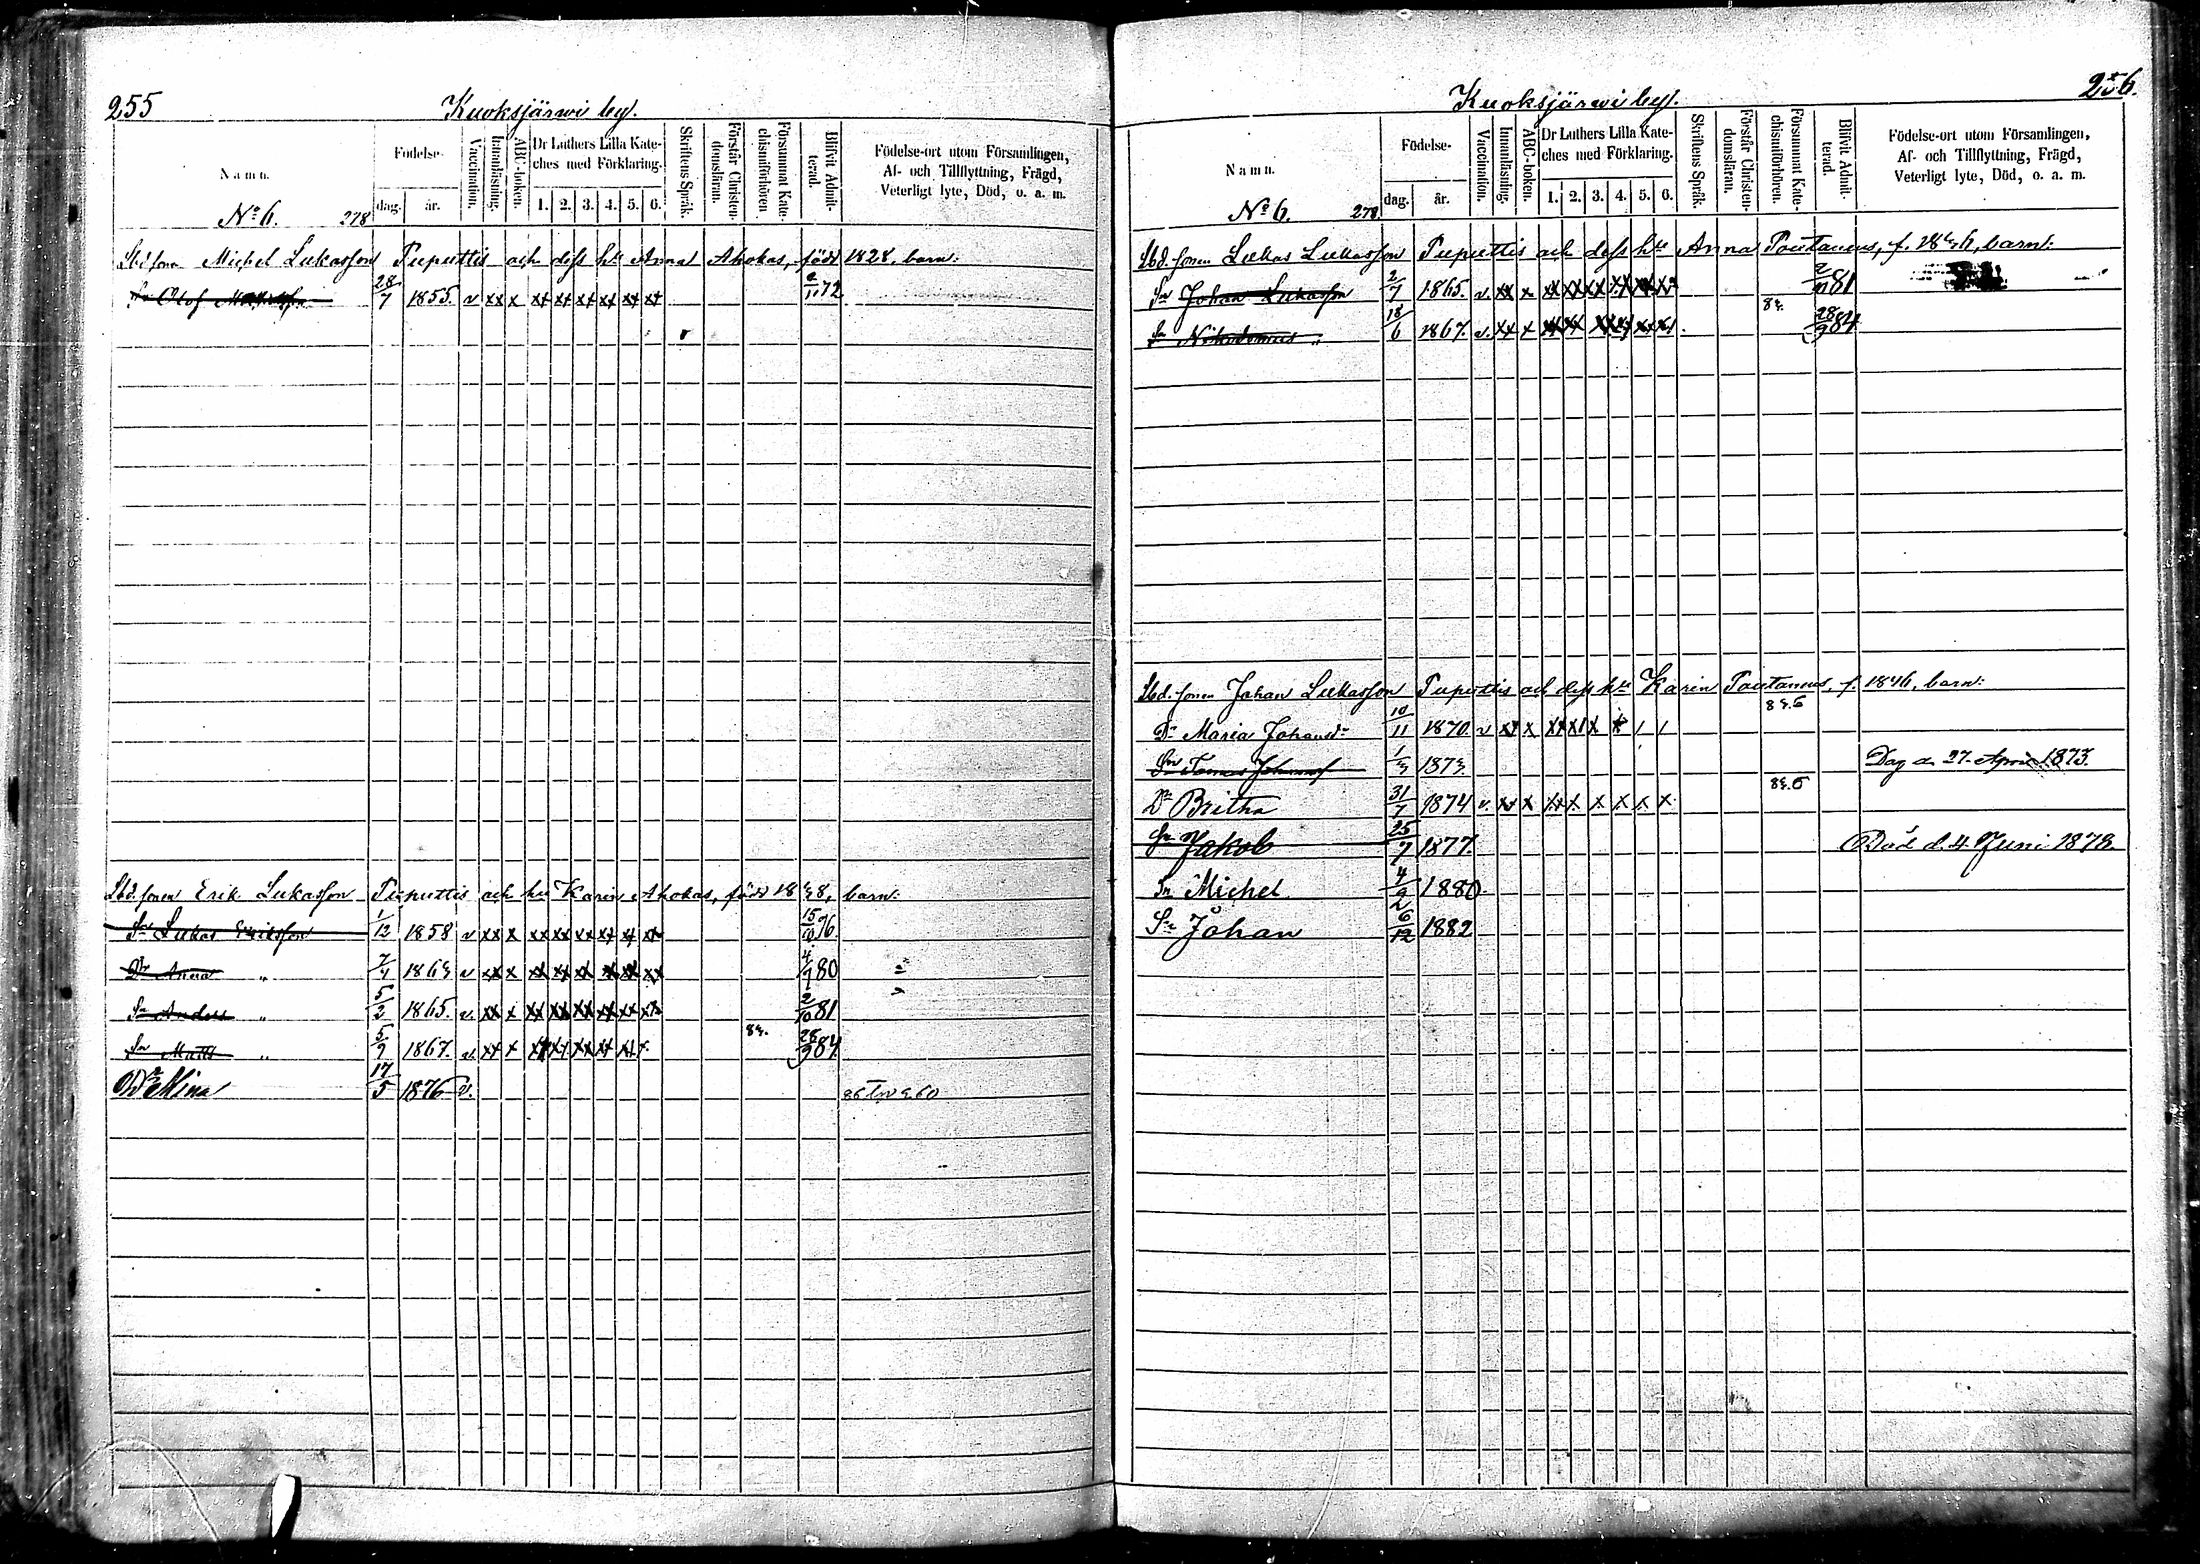 255
Kuoksjärwi by.
Namn.
Födelse-
dag. år.
Vaccination.
Innanläsning.
ABC-boken.
Dr Luthers Lilla Kate-
ches med Förklaring.
1. 2. 3. 4. 5. 6.
Skriftens Språk.
Förstår Christen-
domsläran.
Försummat Kate-
chismiförhören.
Blifvit Admit-
terad.
Födelse-ort utom Församlingen,
Af- och Tillflyttning, Frägd,
Veterligt lyte, Död, o. a. m.
No 6. 278
Lbd. sonen Michel Lukasson Puputtis och dess hu Anna Ahokas, född 1828, barn:
Sn Olof 28/7 1855. v xx x xx xx xx xx xx xx 2/11 72
Lbd. sonen Erik Lukasson Puputtis och hu Karin Ahokas, född barn:
Sn Lukas Eriksson 1/12 1858 v xx x xx xx xx xx x xx 15/10 76
Dr Anna " 7/4 v xx x xx xx xx xx xx xx 80
Sn Anders " 5/2 1865. v. xx x xx xx xx xx xx xx 2/10 81
Sn Matts " 5/9 1867. v. xx x xx xx xx xx xx x. 28/9 84
Dr Mina 17/5 1876 v.
256.
Kuoksjärwi by.
Namn.
Födelse-
dag. år.
Vaccination.
Innanläsning.
ABC-boken.
Dr Luthers Lilla Kate-
ches med Förklaring.
1. 2. 3. 4. 5. 6.
Skriftens Språk.
Förstår Christen-
domsläran.
Försummat Kate-
chismiförhören.
Blifvit Admit-
terad.
Födelse-ort utom Församlingen,
Af- och Tillflyttning, Frägd,
Veterligt lyte, Död, o. a. m.
No 6. 278.
Lbd. sonen Lukas Lukasson Puputtis och dess hu Anna Poutanus, f. barn:
Sn Johan Lukasson 2/7 1865. v. xx x xx xx xx xx xx xx 2/11 81
Sn Nikodemus " 18/6 1867. v. xx x xx xx xx xx xx xx 28/9 84
Lbd. sonen Johan Lukasson Puputtis och dess hu Karin Poutanus, f. 1846, barn:
Dr Maria Johansdr 10/11 1870. v xx x xx xx x x / /
Sn Johansson 1873. 27. April 1873.
Dr Britha 31/7 1874 v. xx x xx x. x x x. x.
Sn Jakob 25/7 1877. Död d. 4 Juni 1878.
Sn Michel 4/9 1880.
Sn Johan 6/12 1882